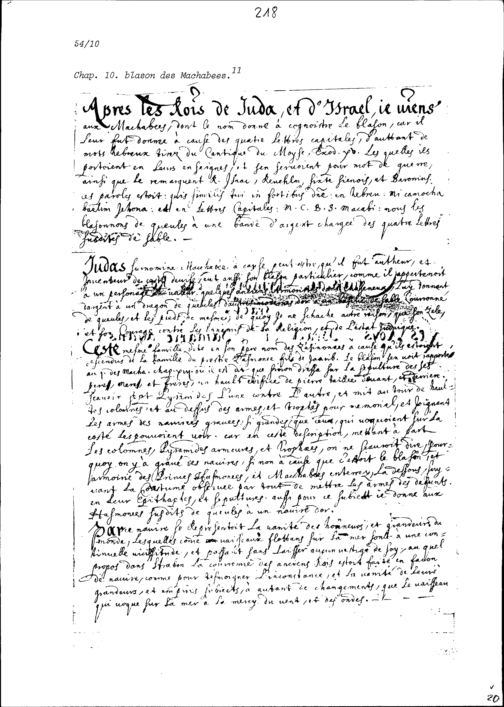 218
54/10
Chap. 10. blason des Machabees.11
Apres les Rois de Juda, et d'Israel, ie viens
aux Machabees, dont le nom donne à cognoistre le blason, car il
leur fut donné à cause des quatre lettres capitales, d'auttant de
mots hebreux tirez du Cantique du Moyse. Exod. 15. Les quelles ils
portoient en leurs enseignes, et s'en servoient pour mot de guerre,
ainsi que le remarquent R. Isaac, Reuchlin, Sixte Sienois, et Baronius.
ces paroles estoit: quis similis tui in fortibus en hebreu: mi camocha
baelim Jehova: et en lettres Capitales: M. C. B. J. Macbi: nous les
blasonnons de gueules à une bande d'argent chargee des quatre lettres
susdites de sable.
Judas surnommé Machabee à cause, peut estre, qu'il fut autheur, et
inventeur de ceste devise, eut aussi son blason particulier, comme il appartenoit
à un personnage de valeur, quelques luy donnent
d'argent à un dragon de gueules couronné
de gueules, et les pieds de mesme, de quoy Je ne scache autre raison, que son zele,
et son courage contre les ennemis de la Religion, et de l'estat Judaique.
Ceste mesme famille, dite en son propre nom des Hasmonees à cause qu'ils estoient
descendus de la famille du prestre Hasmonee fils de Joarib. Le blason s'en voit rapporté
au 1. des Macha. chap. 13. où il est dit que Simon dressa sur la sepulture des ses
pere, mere, et freres, un hault edifice de pierre taillée devant, et derriere.
Scavoir sept Pyramides l'une contre l'autre, et mit au tour de haul-
tes colonnes et au dessus des armes, et trophés pour memorial, et Joignant
les armes des navires gravees si grandes, que ceux, qui voguoient sur la
coste les pouvoient voir. car en ceste description, mettant à part
les colomnes, Pyramides armeures, et Trophees, on ne scauroit dire, pour-
quoy on y a gravé ces navires, si non à cause que c'estoit le blason, et
l'armoirie des Princes Hasmonees, et Machabees enterrez là dessous, suy-
vant la coustume observee par tout de mettre les armes des defunts
en leur Epithaphes, et sepultures. aussi pour ce subiect ie donne aux
Hasmonees susdits de gueules à un navire d'or.
Par ce navire se represontit la vanité des honneurs, et grandeurs du
monde, lesquelles côme vaisseaux flottans sur la mer sont à une con-
tinuelle vicissitude, et passant sans laisser aucun vestige de soy, au quel
propos dans Strabon la couronne des anciens Rois estoit faite en facon
de navire, comme pour tesmoigner l'inconstance, et la vanité de leurs
grandeurs, et empires subiects à autant de changements, que le vaisseau
qui vogue sur la mer à la mercy du vent, et des ondes.
20